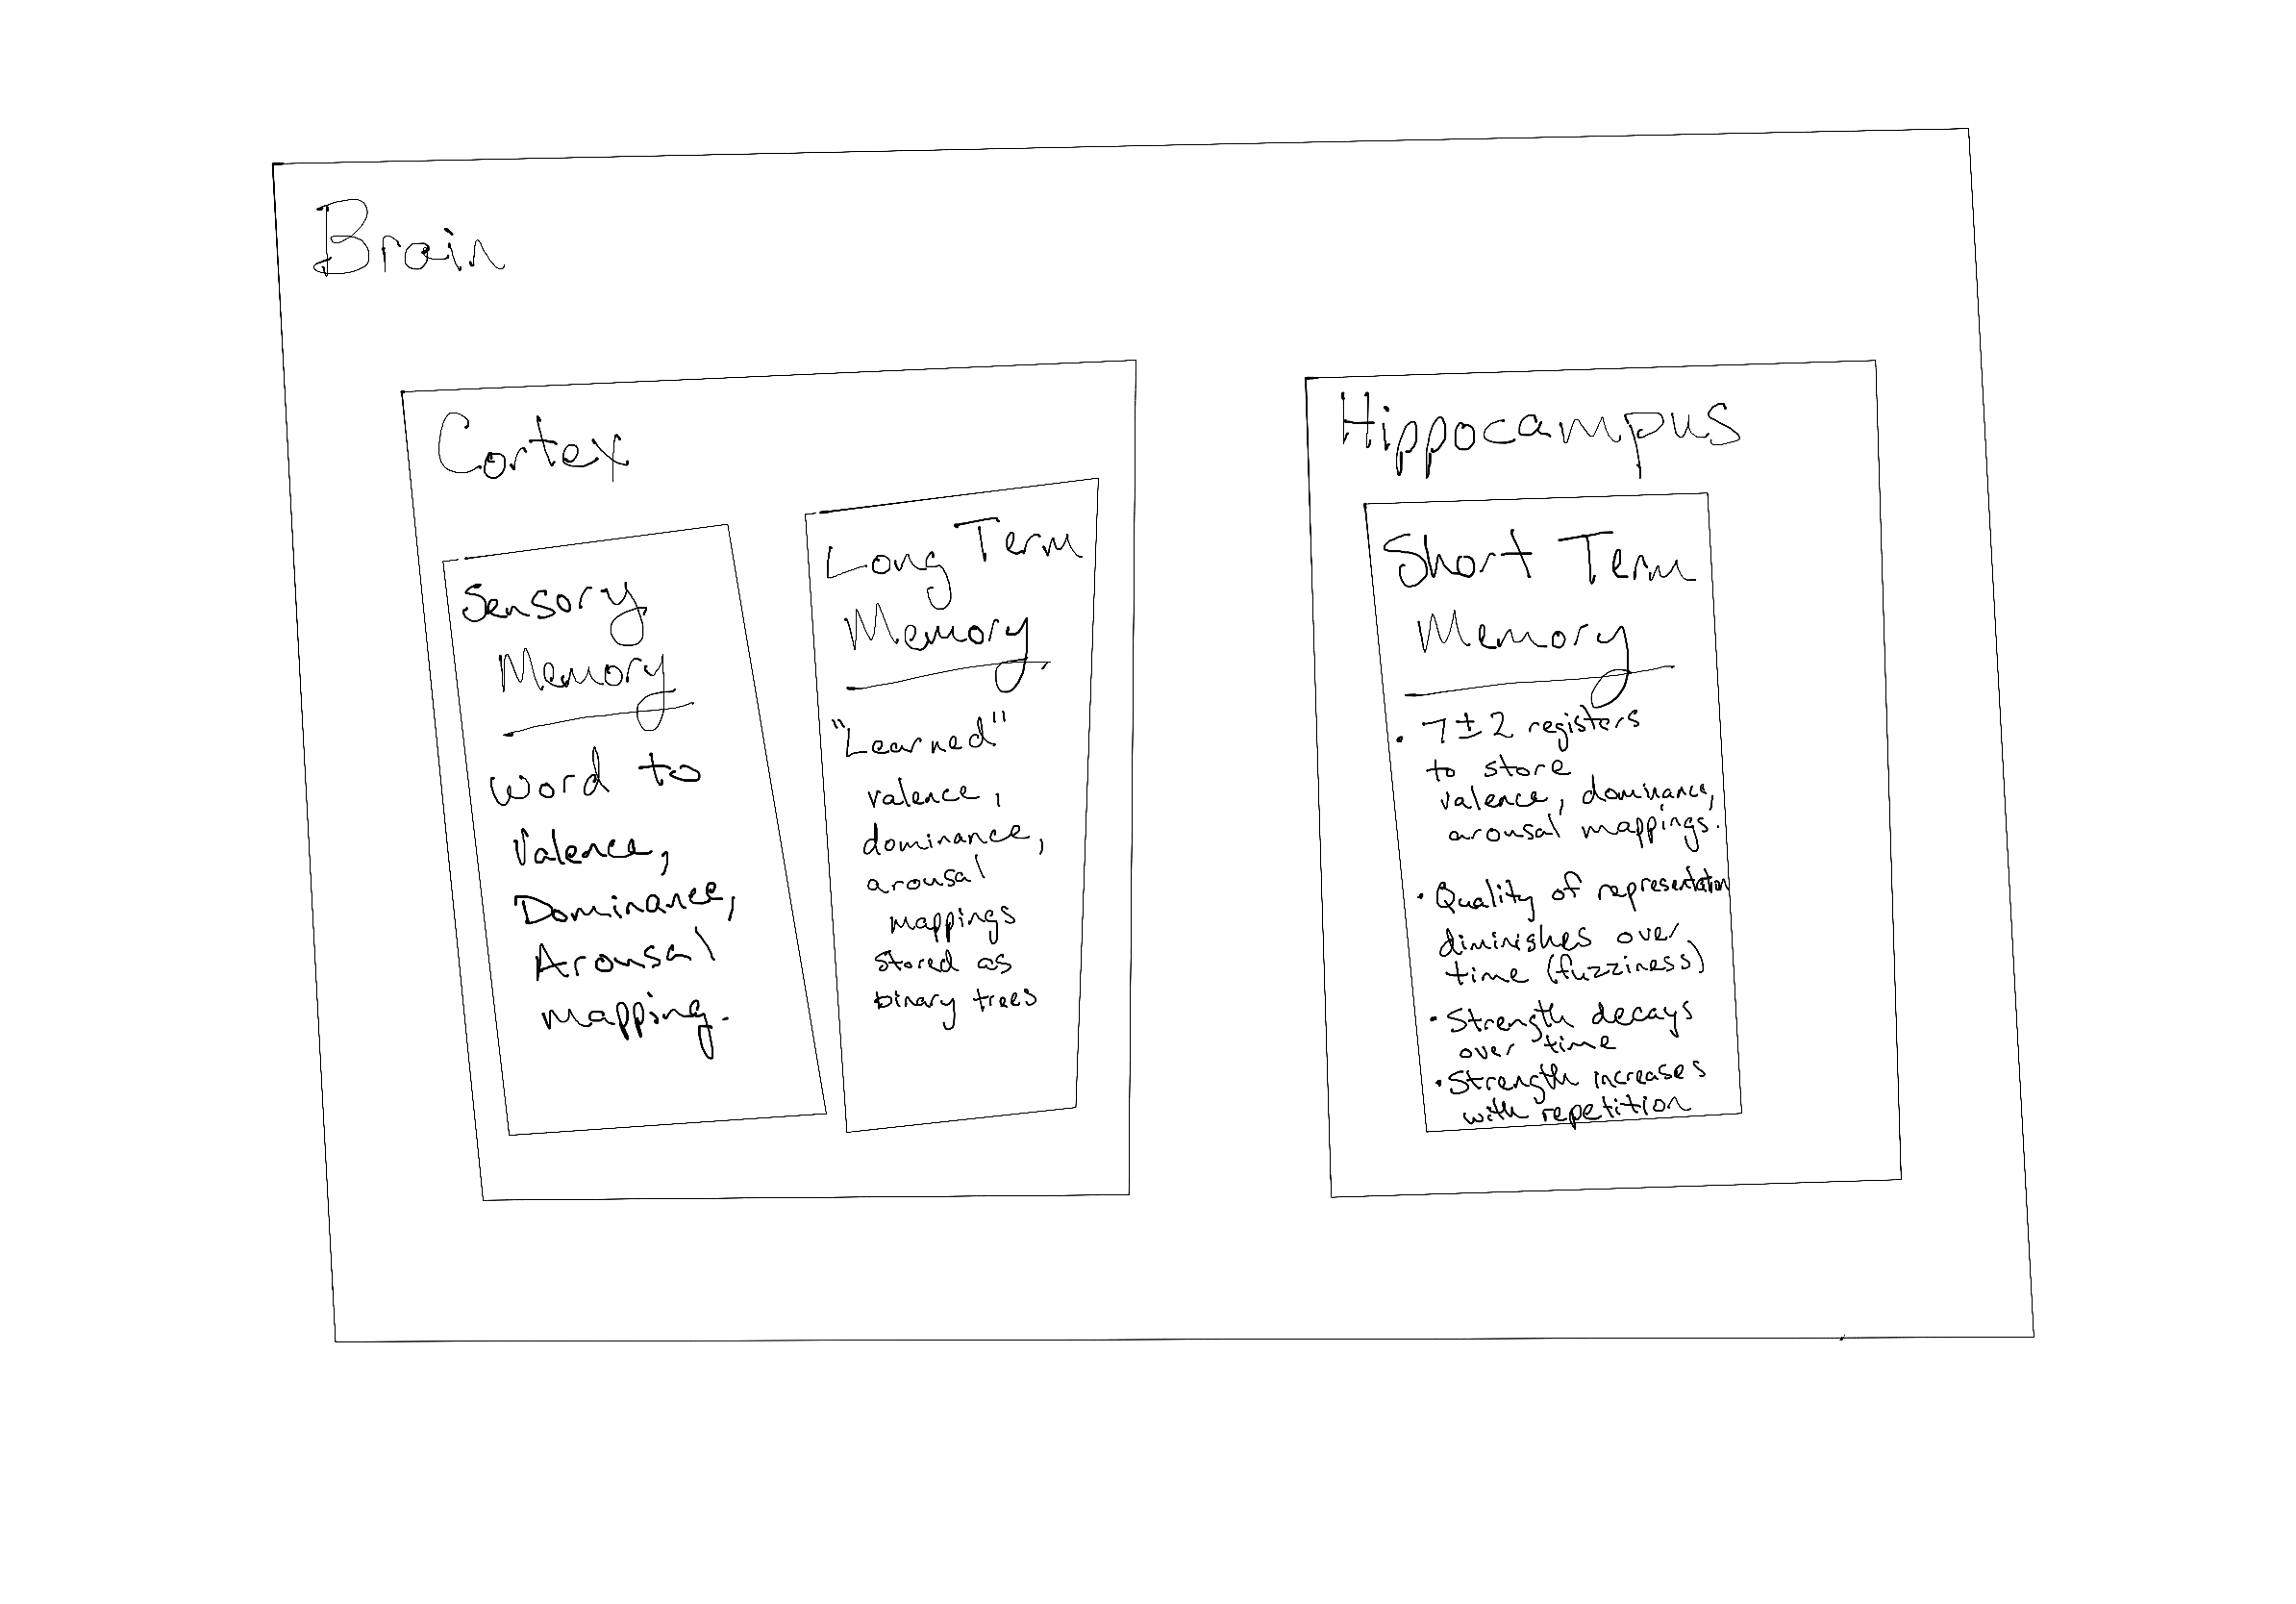 Brain
Cortex
Sensory
Memory
word to
Valence,
Dominance,
Arousal
mapping.
Long Term
Memory
"Learned"
valence,
dominance,
arousal
mappings
stored as
binary trees
Hippocampus
Short Term
Memory
• 7±2 registers
to store
valence, dominance,
arousal mappings.
• Quality of representation
diminishes over
time (fuzziness)
• Strength decays
over time
• Strength increases
with repetition